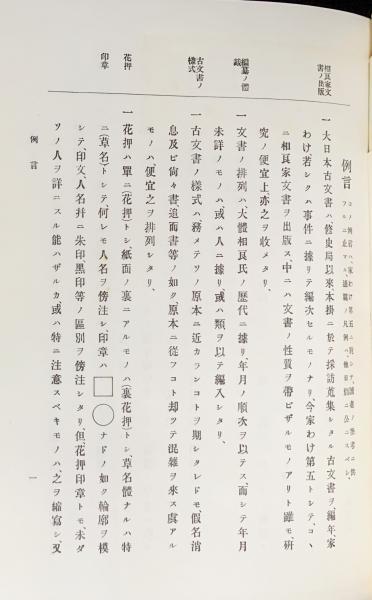 例言
コノ例言ハ、家わけ第五ニ則シテ、讀者ノ參考ニ供
フルニ止マル、通篇ノ凡例ハ、他日別ニ公ニスベシ、
相良家文
書ノ出版
一 大日本古文書ハ、修史局以來本掛ニ於テ採訪蒐集シタル古文書ヲ、編年、家
わけ若シクハ事件ニ據リテ編次セルモノナリ、今家わけ第五トシテ、コヽ
ニ相良家文書ヲ出版ス、中ニハ文書ノ性質ヲ帶ビザルモノアリト雖モ、研
究ノ便宜上、亦之ヲ收メタリ、
編纂ノ體
裁
一 文書ノ排列ハ、大體相良氏ノ歷代ニ據リ、年月ノ順次ヲ以テス、而シテ年月
未詳ノモノハ、或ハ人ニ據リ、或ハ類ヲ以テ編入シタリ、
古文書ノ
樣式
一 古文書ノ樣式ハ、務メテソノ原本ニ近カランコトヲ期シタレドモ、假名消
息及ビ尙々書、追而書等ノ如ク、原本ニ從フコト却ツテ混雜ヲ來ス虞アル
モノハ、便宜之ヲ排列シタリ、
花押
一 花押ハ單ニ(花押)トシ、紙面ノ裏ニアルモノハ(裏花押)トシ、草名體ナルハ特
印章
ニ(草名)トシテ、何レモ人名ヲ傍注シ、印章ハ□○ドノ如ク輪廓ヲ模
シテ、印文、人名幷ニ朱印、黑印等ノ區別ヲ傍注シタリ、但、花押印章トモ、未ダ
ソノ人ヲ詳ニスル能ハザルカ、或ハ特ニ注意スベキモノハ、之ヲ縮寫シ、又
例言
一